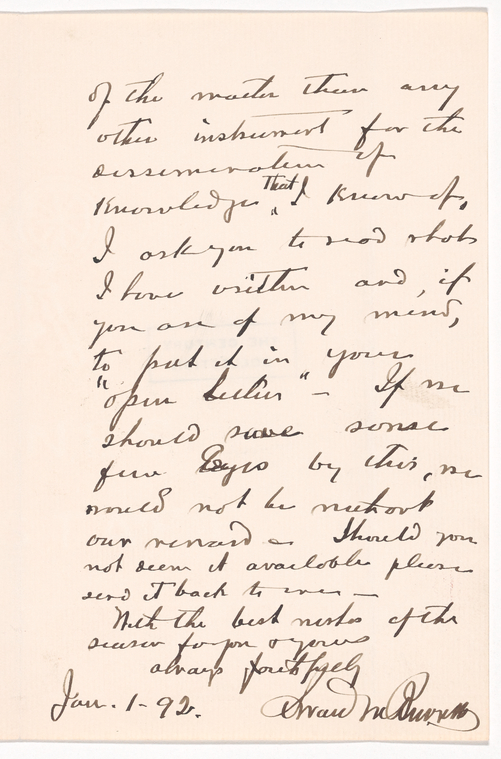 of the matter than any
other instrument for the
dissemination of
Knowledge that I know of,
I ask you to read what
I have written and, if
you are of my mind,
to put it in your
"open letters" - If we
should save some
few Eyes by this, we
would not be without
our reward - Should you
not deem it available please
send it back to me -
With the best wishes of the
season for you & yours
always faithfully
Jan. 1-92. Swan M. Burnett